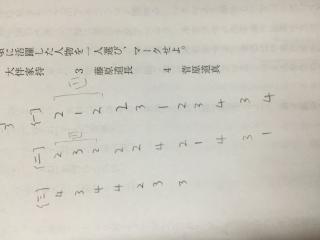 に活躍した人物を一人選び、マークせよ。
大伴家持 3 藤原道長 4 菅原道真
(一) 2 1 2 2 3 1 2 3 4 3 4
(二) 2 3 2 2 2 4 2 1 4 3 1
(三) 4 3 4 4 2 3 3